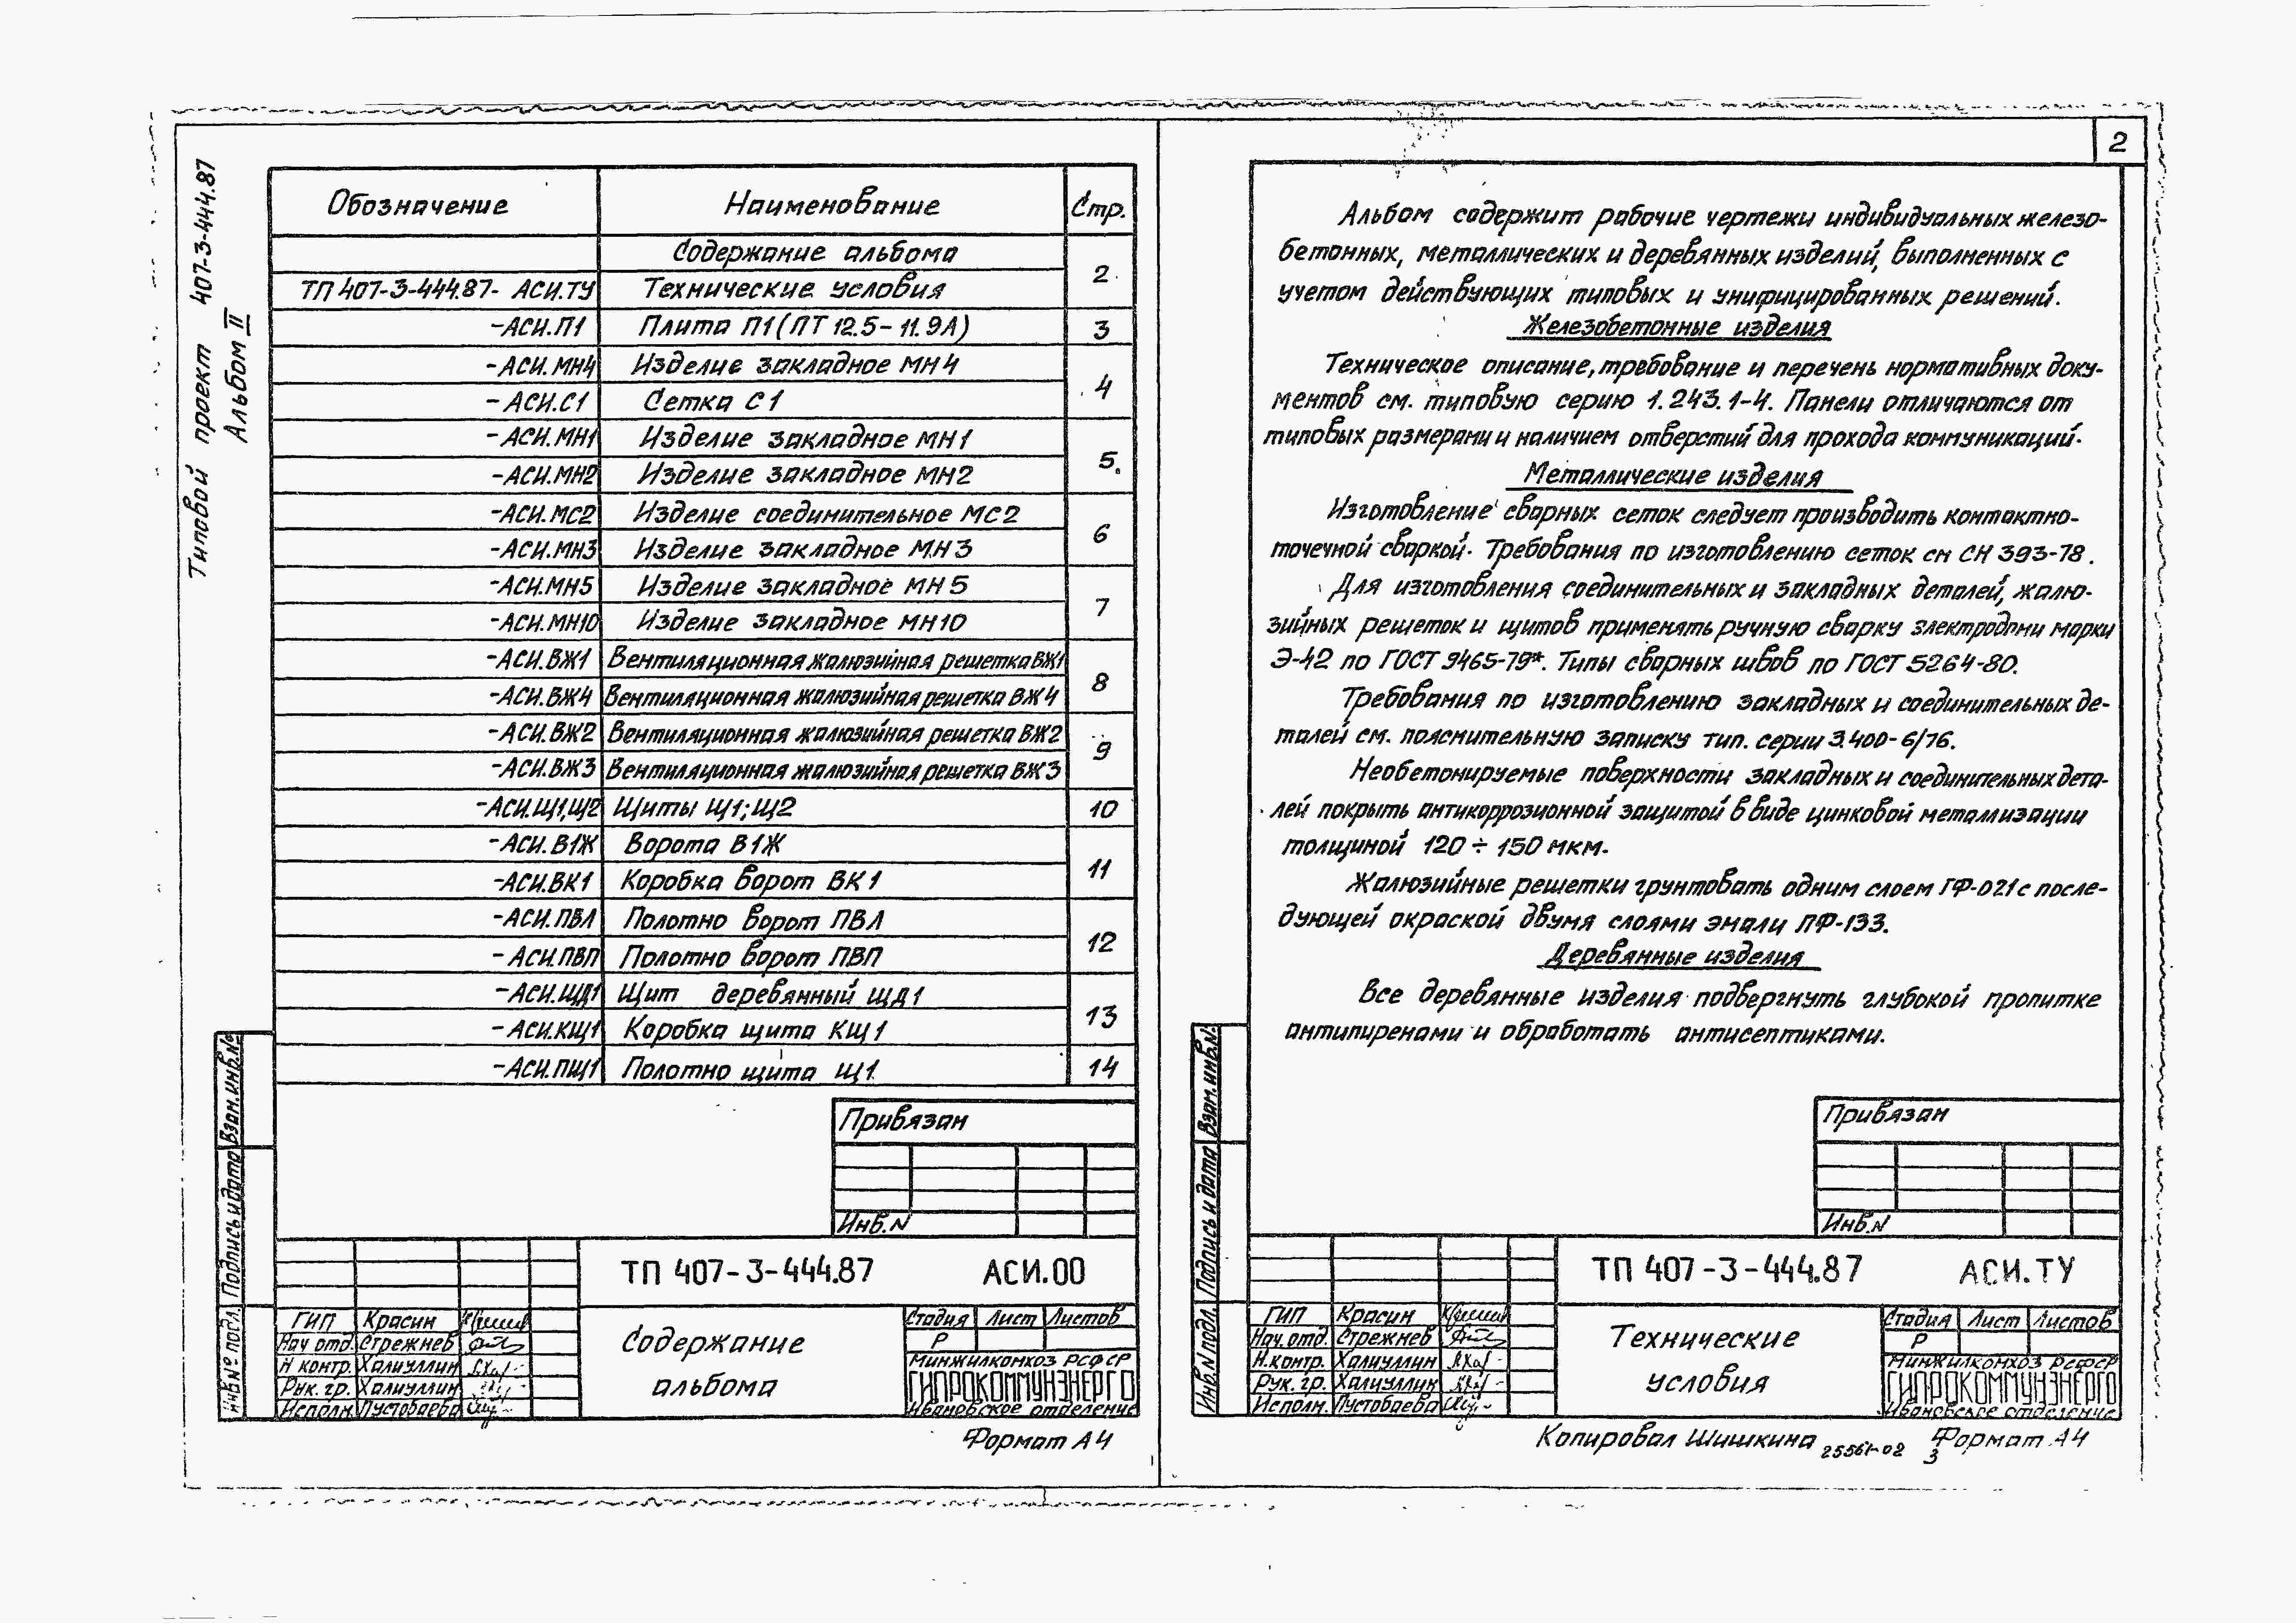 Типовой проект 407-3-444.87
Альбом II
Обозначение Наименование Стр.
Содержание альбома 2
ТП 407-3-444.87- АСИ.ТУ Технические условия
-АСИ.П1 Плита П1 (ПТ 12.5-11.9А) 3
-АСИ.МН4 Изделие закладное МН4 4
-АСИ.С1 Сетка С1
-АСИ.МН1 Изделие закладное МН1 5
-АСИ.МН2 Изделие закладное МН2
-АСИ.МС2 Изделие соединительное МС2 6
-АСИ.МН3 Изделие закладное МН3
-АСИ.МН5 Изделие закладное МН5 7
-АСИ.МН10 Изделие закладное МН10
-АСИ.ВЖ1 Вентиляционная жалюзийная решетка ВЖ1 8
-АСИ.ВЖ4 Вентиляционная жалюзийная решетка ВЖ4
-АСИ.ВЖ2 Вентиляционная жалюзийная решетка ВЖ2 9
-АСИ.ВЖ3 Вентиляционная жалюзийная решетка ВЖ3
-АСИ.Щ1,Щ2 Щиты Щ1; Щ2 10
-АСИ.В1Ж Ворота В1Ж 11
-АСИ.ВК1 Коробка ворот ВК1
-АСИ.ПВЛ Полотно ворот ПВЛ 12
-АСИ.ПВП Полотно ворот ПВП
-АСИ.ЩД1 Щит деревянный ЩД1 13
-АСИ.КЩ1 Коробка щита КЩ1
-АСИ.ПЩ1 Полотно щита Щ1 14
Привязан
Инв.N
ТП 407-3-444.87 АСИ.00
ГИП Красин
Нач отд. Стрежнев
Н контр. Халиуллин
Рук. гр. Халиуллин
Исполн. Пустобаева
Содержание
альбома
Стадия Лист Листов
Р
Минжилкомхоз РСФСР
ГИПРОКОММУНЭНЕРГО
Ивановское отделение
Инв № подл. Подпись и дата Взам.инв.№
Формат А4
2
Альбом содержит рабочие чертежи индивидуальных железо-
бетонных, металлических и деревянных изделий, выполненных с
учетом действующих типовых и унифицированных решений.
Железобетонные изделия
Техническое описание, требование и перечень нормативных доку-
ментов см. типовую серию 1.243.1-4. Панели отличаются от
типовых размерами и наличием отверстий для прохода коммуникаций.
Металлические изделия
Изготовление сварных сеток следует производить контактно-
точечной сваркой. Требования по изготовлению сеток см СН 393-78.
Для изготовления соединительных и закладных деталей, жалю-
зийных решеток и щитов применять ручную сварку электродами марки
Э-42 по ГОСТ 9465-79*. Типы сварных швов по ГОСТ 5264-80.
Требования по изготовлению закладных и соединительных де-
талей см. пояснительную записку тип. серии 3.400-6/76.
Необетонируемые поверхности закладных и соединительных дета-
лей покрыть антикоррозионной защитой в виде цинковой металлизации
толщиной 120 ÷ 150 мкм.
Жалюзийные решетки грунтовать одним слоем ГФ-021 с после-
дующей окраской двумя слоями эмали ПФ-133.
Деревянные изделия
Все деревянные изделия подвергнуть глубокой пропитке
антипиренами и обработать антисептиками.
Привязан
Инв.N
ТП 407-3-444.87 АСИ.ТУ
ГИП Красин
Нач.отд. Стрежнев
Н.контр. Халиуллин
Рук. гр. Халиуллин
Исполн. Пустобаева
Технические
условия
Стадия Лист Листов
Р
Минжилкомхоз РСФСР
ГИПРОКОММУНЭНЕРГО
Ивановское отделение
Инв.N подл. Подпись и дата Взам.инв.N
Копировал Шишкина 25561-02 3 Формат А4